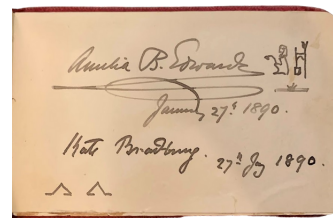 Amelia B. Edwards
January 27th 1890.
Kate Bradbury.
27th Jy 1890.